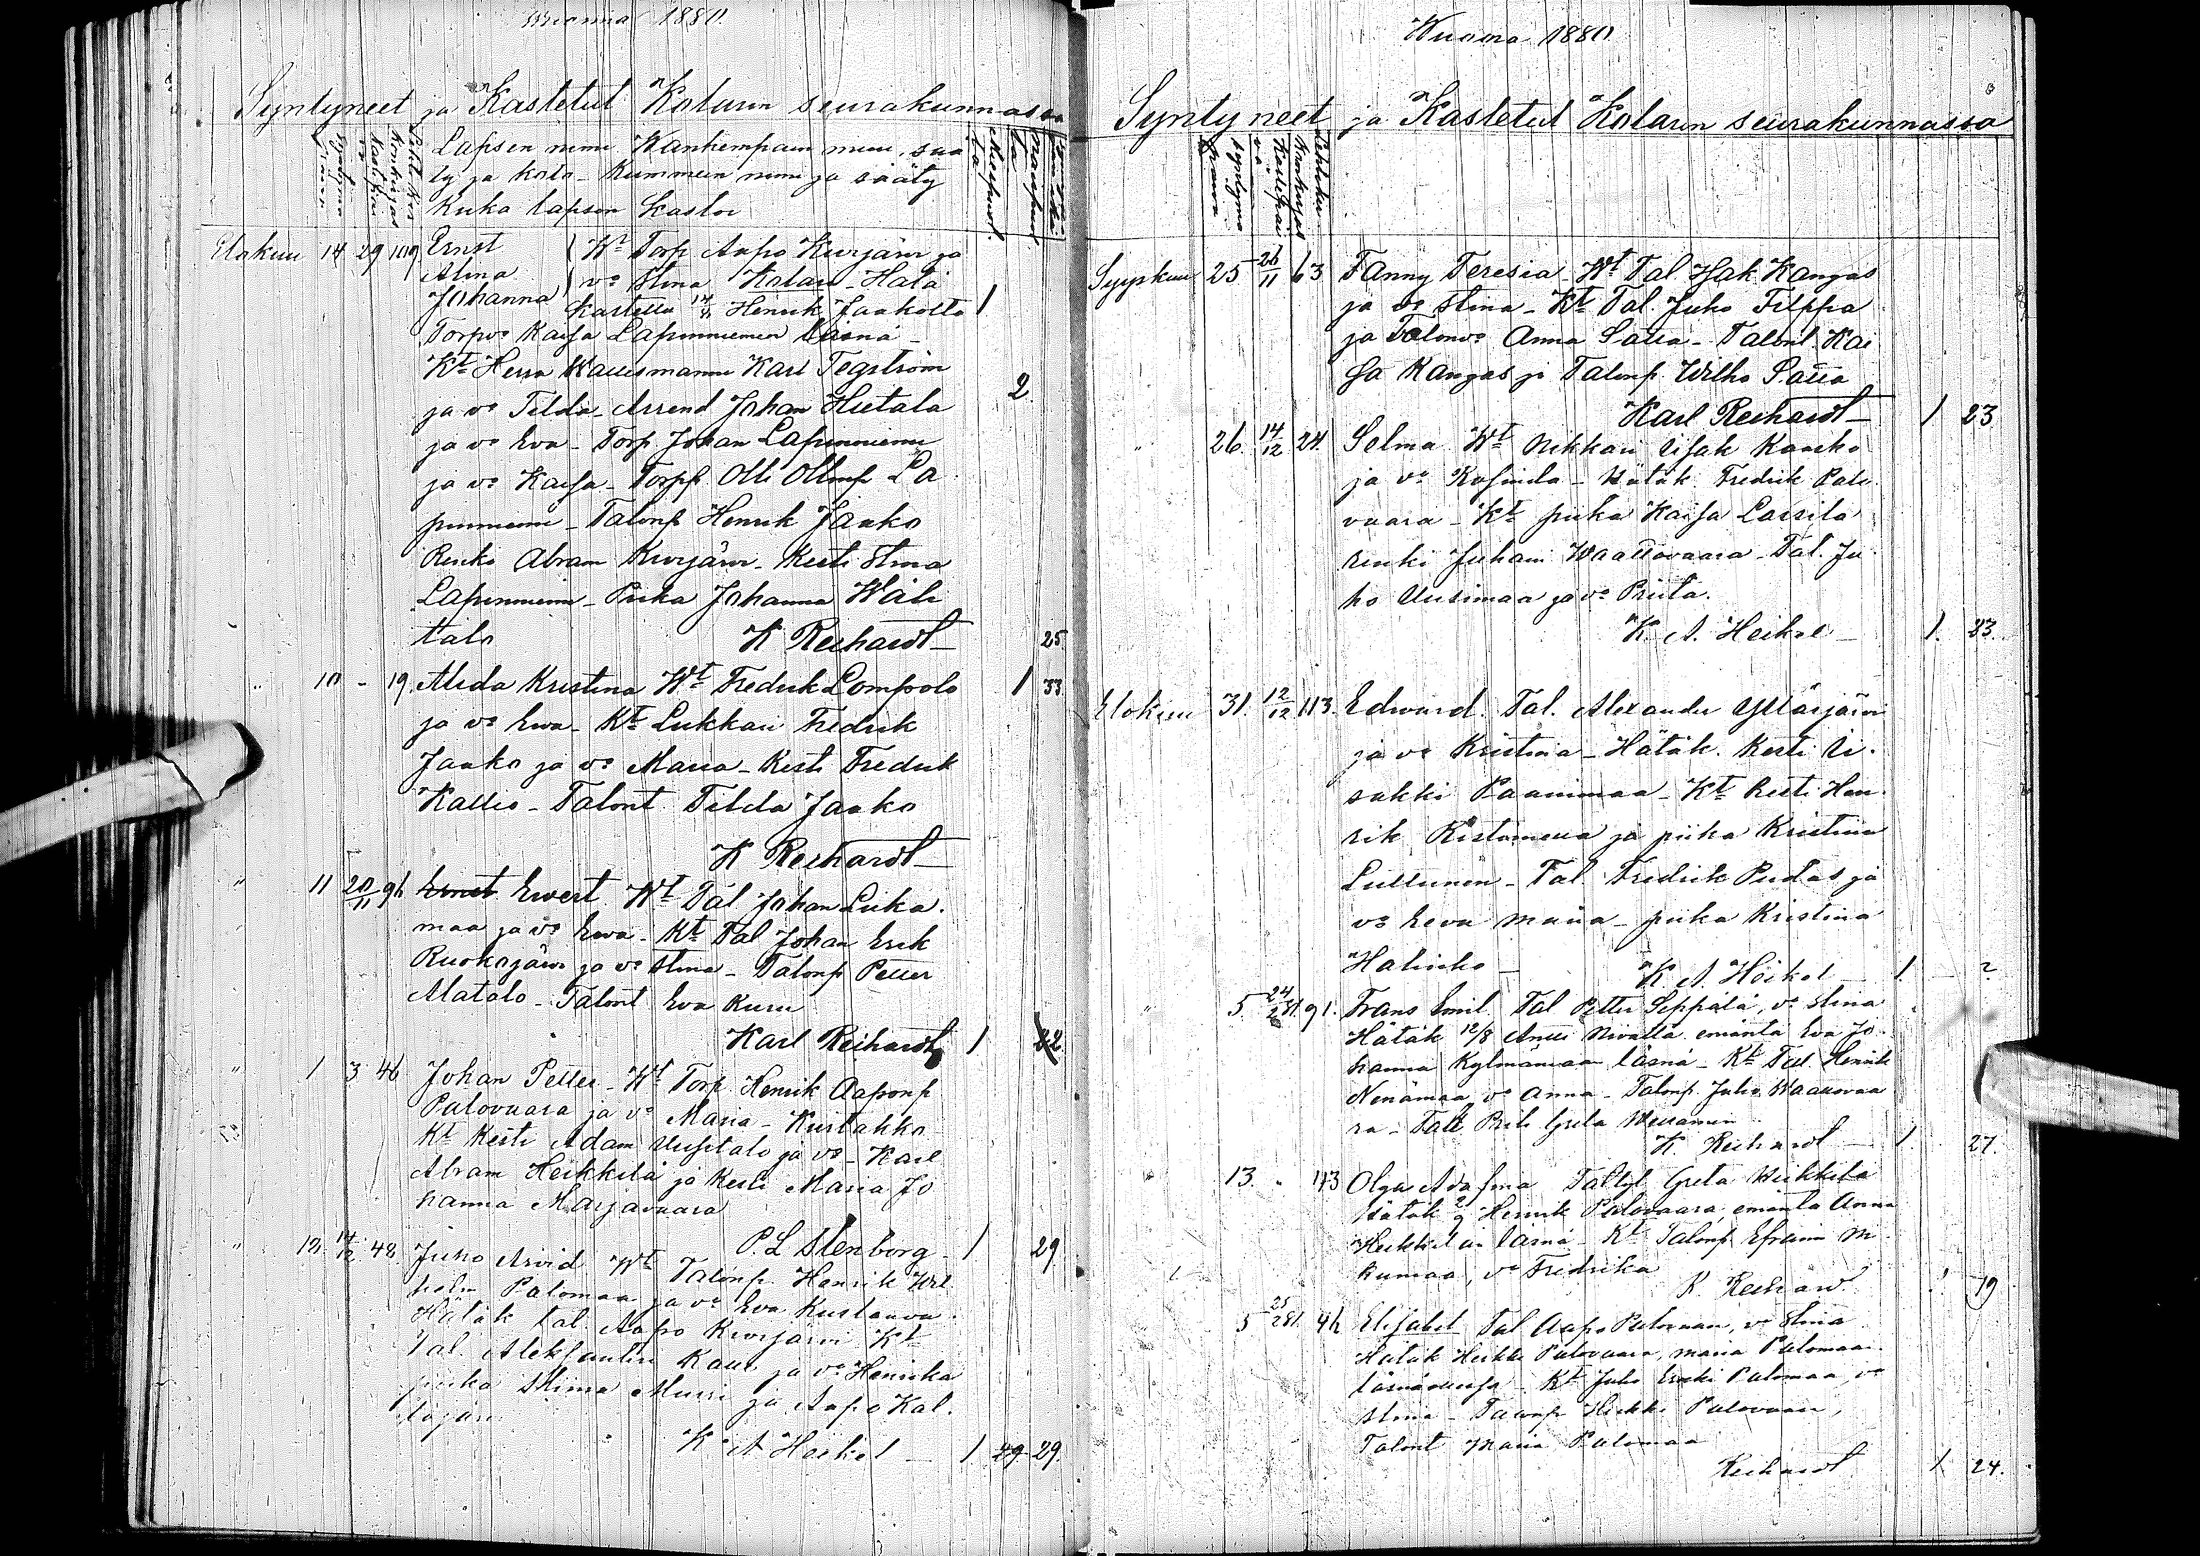 Wuonna 1880.
Syntyneet ja Kastetut Kolarin seurakunnassa
Lapsen nimi. Wanhempain nimi, sää
ty ja koto - Kummein nimi ja sääty
Kuka lapsen kastoi
Elokuu 14 29 109 Ernst } Wt Torp Aapo Kurjärvi ja
Alma } vo Stina Kolari - Hätä
Johanna } kastettu 14/8 Henrik Jaakolta 1
Torpvo Kaisa Lapinniemen läsnä -
Kt Herra Wallesmanni Karl Tegström
ja vo Tilda - Arrend Johan Hietala 2
ja vo Eva - Torp Johan Lapinniemi
ja vo Kaisa - Torpp Olli Ollinp La
pinniemi - Talonp Henrik Jaako
Renki Abram Kurjärvi - Kesti Stina
Lapinniemi - Piika Johanna Wäli
talo K Reihardt 25.
" 10 - 19. Alida Kristina Wt Fredrik Lompolo 1 33.
ja vo Ewa - Kt Lukkari Fredrik
Jaako ja vo Maria - Kesti Fredrik
Kallio - Talont Tilda Jaako
K Reihardt
" 11 20/11 91 Ernst Ewert. Wt Tal Johan Liika.
maa ja vo Ewa - Kt Tal Johan Erik
Ruokojärvi ja vo Stina - Talonp Petter
Alatalo - Talont Eva Kuru
Karl Reihardt 1 22
" 1 3 46 Johan Petter - Wt Torp Henrik Aaponp
Palovaara ja vo Maria - Kurtakko
Kt Kesti Adam Uusitalo ja vo - Karl
Abram Heikkilä ja Kesti Maria Jo
hanna Marjavaara
P. L. Stenborg 1 29
" 12. 14/12. 48. Juho Arvid Wt Talonp. Henrik Wil
helm Palomaa ja vo Eva Kustaava
Hätäk tal. Aapo Kurjärvi Kt
Tal. Aleksanteri Kaui ja vo Henrika
piika Miina Murri ja Aapo Kal.
lojärvi
K. A Heikel 1 29 29.
Wuonna 1880
Syntyneet ja Kastetut Kolarin seurakunnassa
Syyskuu 25 26/11 63 Fanny Teresia Wt Tal Isak Kangas
ja vo Stina - Kt Tal. Juho Filppa
ja Talonvo Anna Satta - Talont. Kai
sa Kangas ja Talonp. Wilho Satta
Karl Reihardt 1 23
" 26. 14/12 24. Selma Wt Nikkari Isak Kaarko
ja vo Rosinda - Hätäk. Fredrik Palo
vaara - Kt piika Kaisa Lassila
renki Juhani Waattovaara - Tal. Ju
ho Uusimaa ja vo Priita.
K. A. Heikel 1. 23.
Elokuu 31. 12/12 113. Edward. Tal. Alexander Ylläsjärvi
ja vo Kristina - Hätäk. Kesti Ii.
sakki Paanimaa - Kt Kesti Hen.
rik Ristimella ja piika Kristiina
Lullunen - Tal. Fredrik Pudas ja
vo Eeva Maria - piika Kristiina
K A Heikel 1 2
" 5 24/2 81. 91. Frans Emil. Tal Petter Seppälä, vo Stina
Hätäk 12/8 Antti Nivalta emäntä Eva Jo
hanna Kylmämaan läsnä - Kt Tal. Henrik
Nenämaa, vo Anna - Talonp Juho Waattovaa
ra - Greta
K. Reihardt 1. 27.
13. " 143 Olga Adasina Taltyt Greta Heikkilä
Hätäk Henrik Palovaara, emäntä Anna
Heikkilän läsnä - Kt Talonp Efraim Ni
kumaa, vo Fredrika
K. Reihardt 1 19
5 25/2 81. 42 Elisabet Tal Aapo Palomaa, vo Stina
Hätäk Heikki Palovaara, Maria Palomaan
läsnäollessa - Kt Juho Erkki Palomaa, vo
Stina - Talonp Heikki Palovaara,
Talont Maria Palomaa
Reihardt 1. 24.